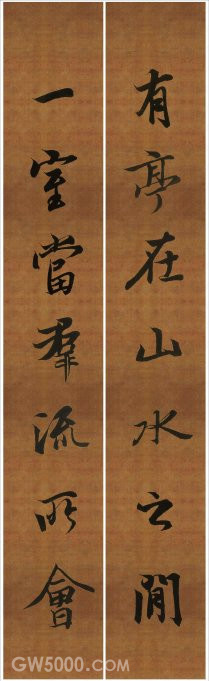 有亭在山水之間
一室當群流所會
GW5000.COM